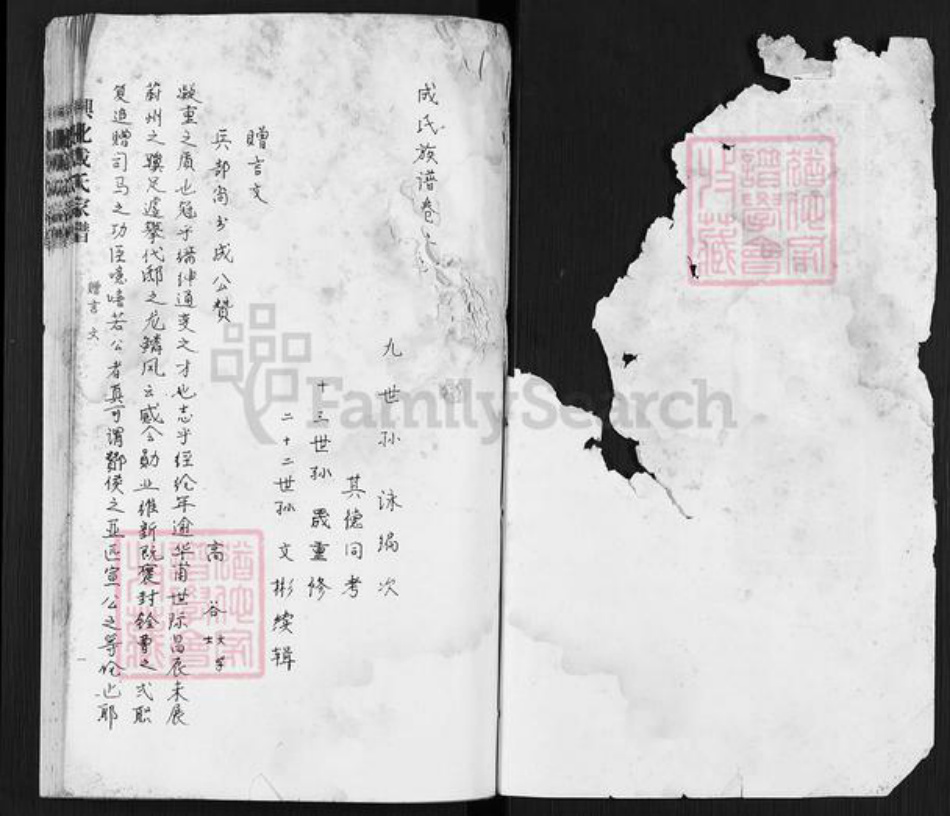 成氏族谱卷
九世孙 泳编次
其德同考
十三世孙 晟重修
二十二世孙 文彬续辑
赠言文
兵部尚书成公赞
高谷 大学士
凝重之质也冠乎缙绅通变之才也志乎经纶年逾华甫世际昌辰未展
蔚州之骥足遽攀代邸之龙鳞风云感会勋业维新既褒封铨曹之式职
复追赠司马之功臣噫嘻若公者真可谓酂侯之亚匹宣公之等伦也耶
兴化成氏家谱
赠言文
FamilySearch
谱学会
收藏
谱学会
收藏